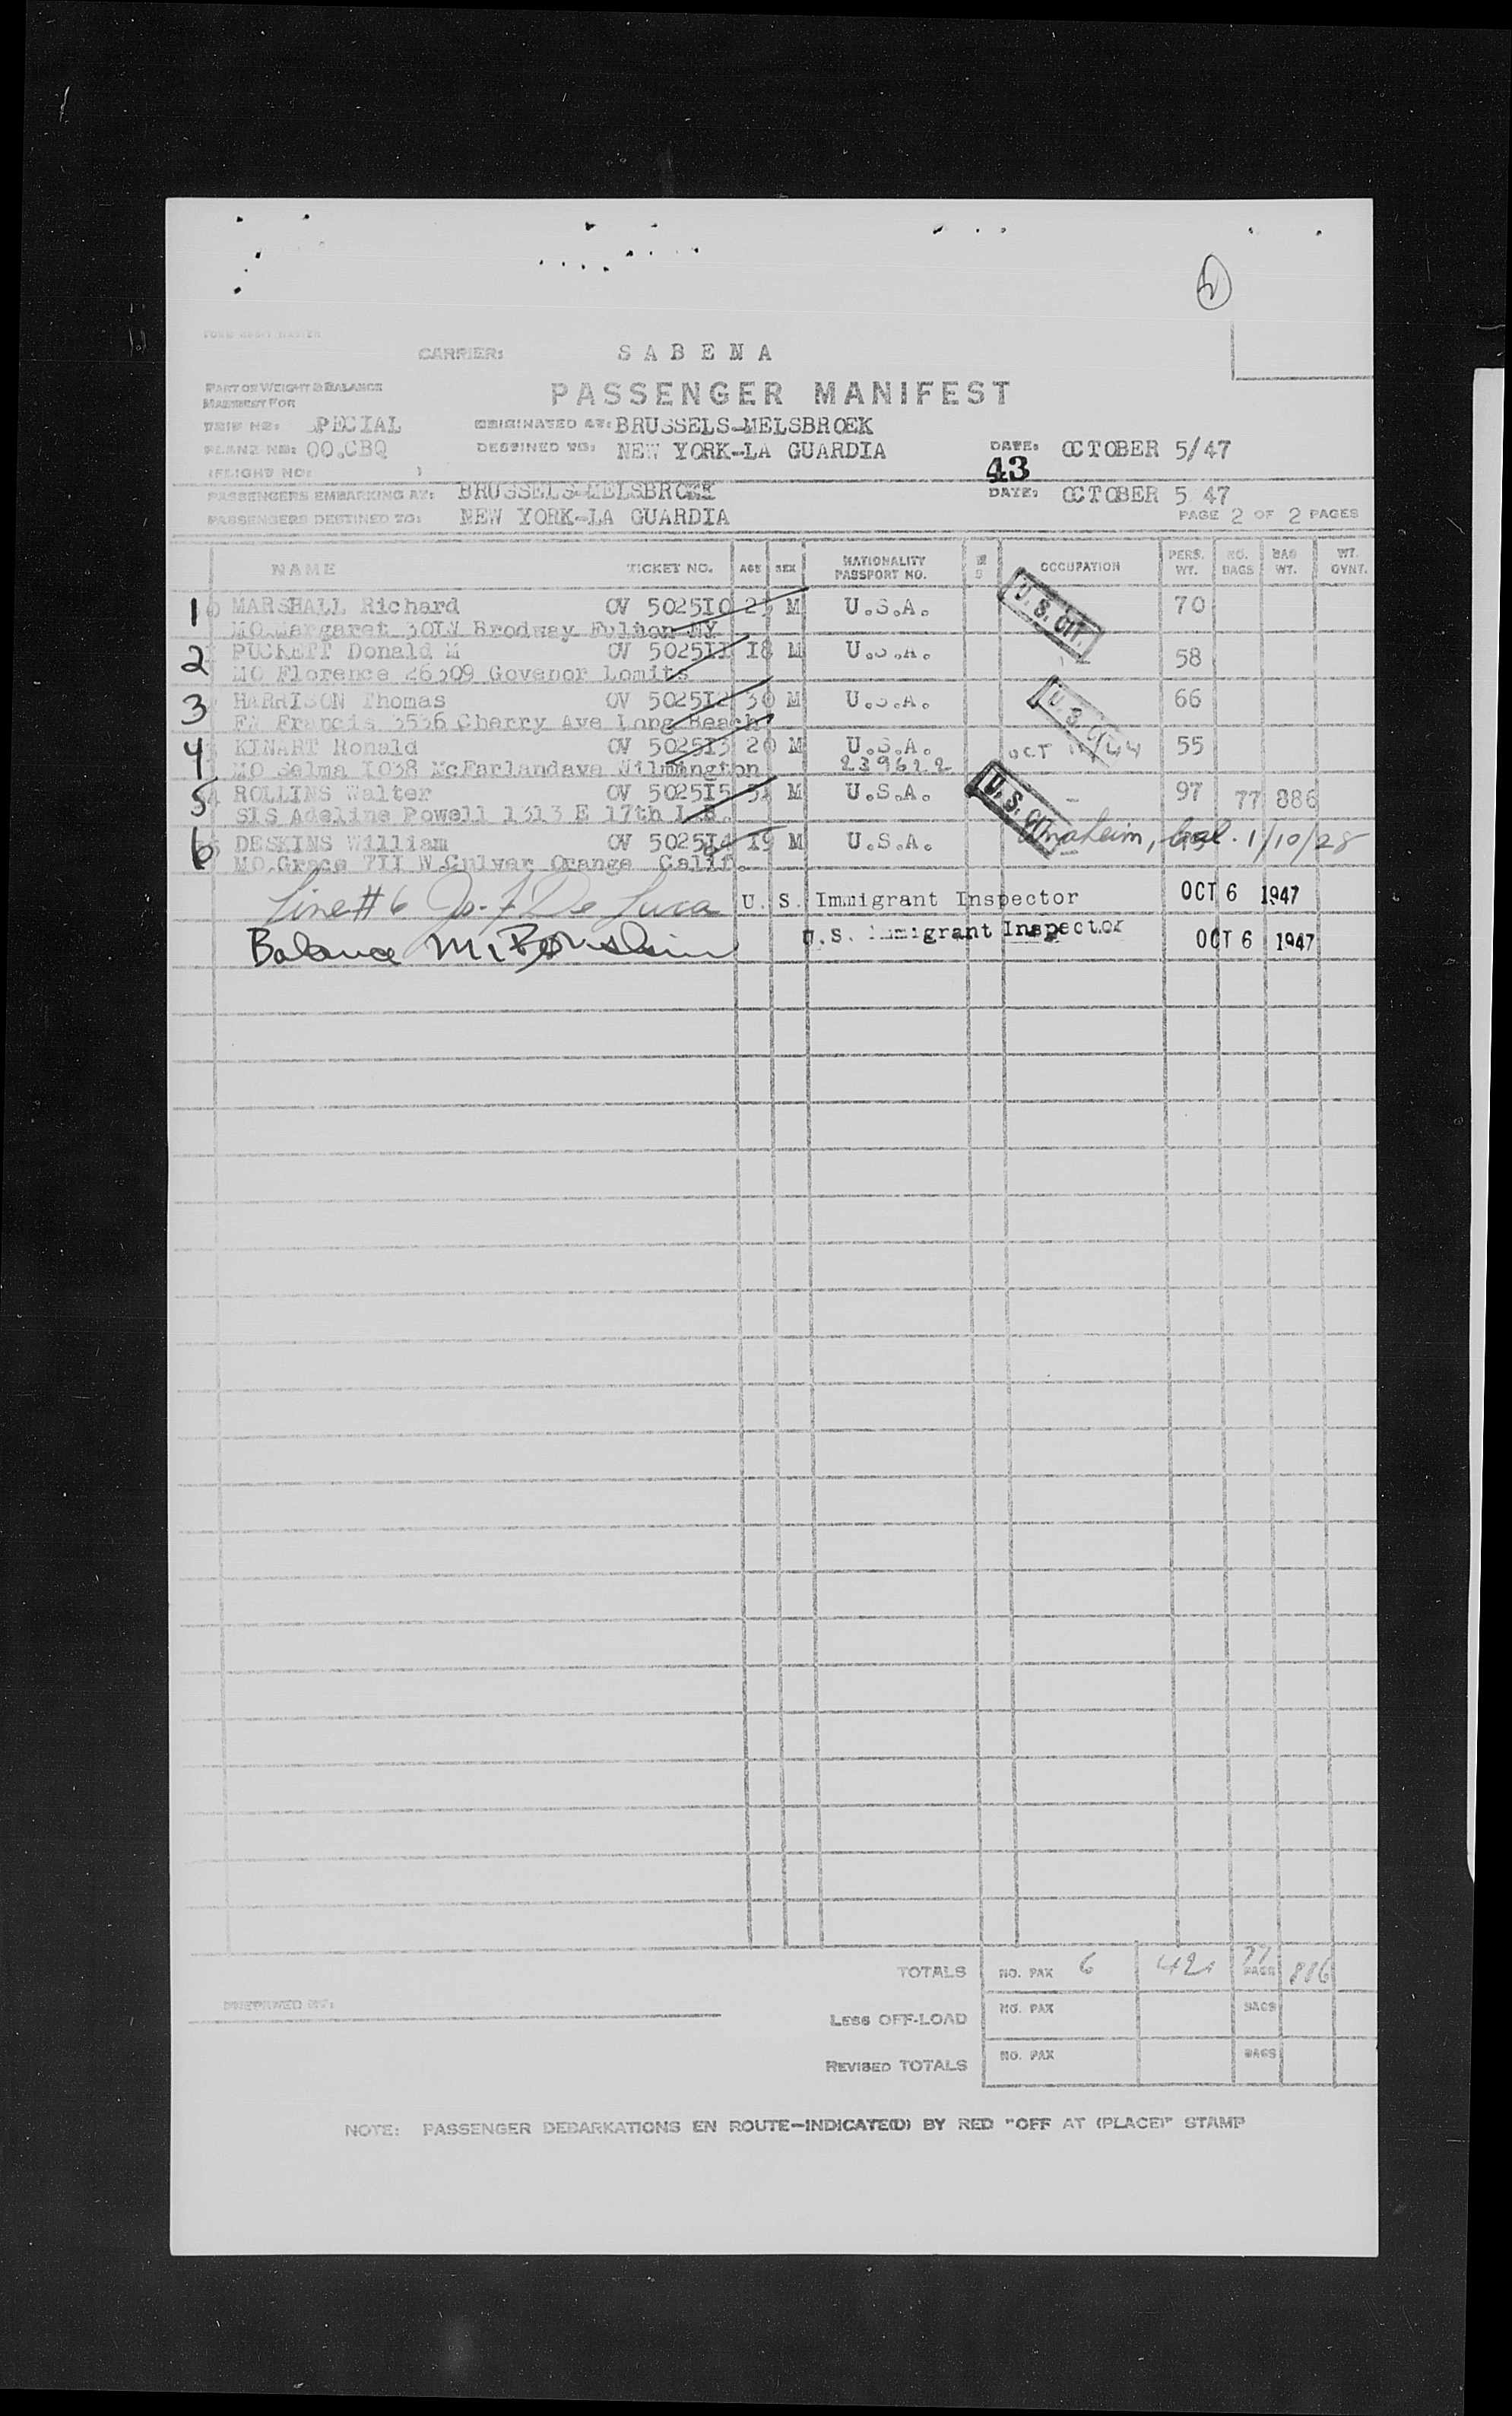 2
CARRIER: SABENA
PART OF WEIGHT & BALANCE
MANIFEST FOR
PASSENGER MANIFEST
TRIP NO: SPECIAL ORIGINATED AT: BRUSSELS-MELSBROEK
PLANE NO: OO.CBQ DESTINED TO: NEW YORK-LA GUARDIA DATE: OCTOBER 5/47
(FLIGHT NO: ) 43
PASSENGERS EMBARKING AT: BRUSSELS-MELSBROEK DATE: OCTOBER 5 47
PASSENGERS DESTINED TO: NEW YORK-LA GUARDIA PAGE 2 OF 2 PAGES
NAME TICKET NO. AGE SEX NATIONALITY PASSPORT NO. OCCUPATION PERS. WT. NO. BAGS BAG WT. WT. OVNT.
1 MARSHALL Richard OV 502510 M U.S.A. U.S. CIT. 70
MO Margaret Brodway Fulton NY
2 PUCKETT Donald M OV 502511 18 M U.S.A. 58
MO Florence 26309 Govenor Lomita
3 HARRISON Thomas OV 502512 30 M U.S.A. U.S. CIT 66
FA Francis 3536 Cherry Ave Long Beach
4 KINART Ronald OV 502513 20 M U.S.A. OCT 55
MO Selma 1038 McFarlandave Wilmington 239622
5 ROLLINS Walter OV 502515 M U.S.A. U.S. CIT 97 77 886
SIS Adeline Powell 1313 E 17th L.B.
6 DESKINS William OV 502514 19 M U.S.A. Anaheim, Cal. 1/10/28
MO.Grace 711 N.Culver Orange Calif.
Line #6 Jo. F De Luca U. S. Immigrant Inspector OCT 6 1947
Balance M. Bernstein U.S. Immigrant Inspector OCT 6 1947
TOTALS NO. PAX 6 421 77 BAGS 886
PREPARED BY:
LESS OFF-LOAD NO. PAX BAGS
REVISED TOTALS NO. PAX BAGS
NOTE: PASSENGER DEBARKATIONS EN ROUTE-INDICATE(D) BY RED "OFF AT (PLACE)" STAMP